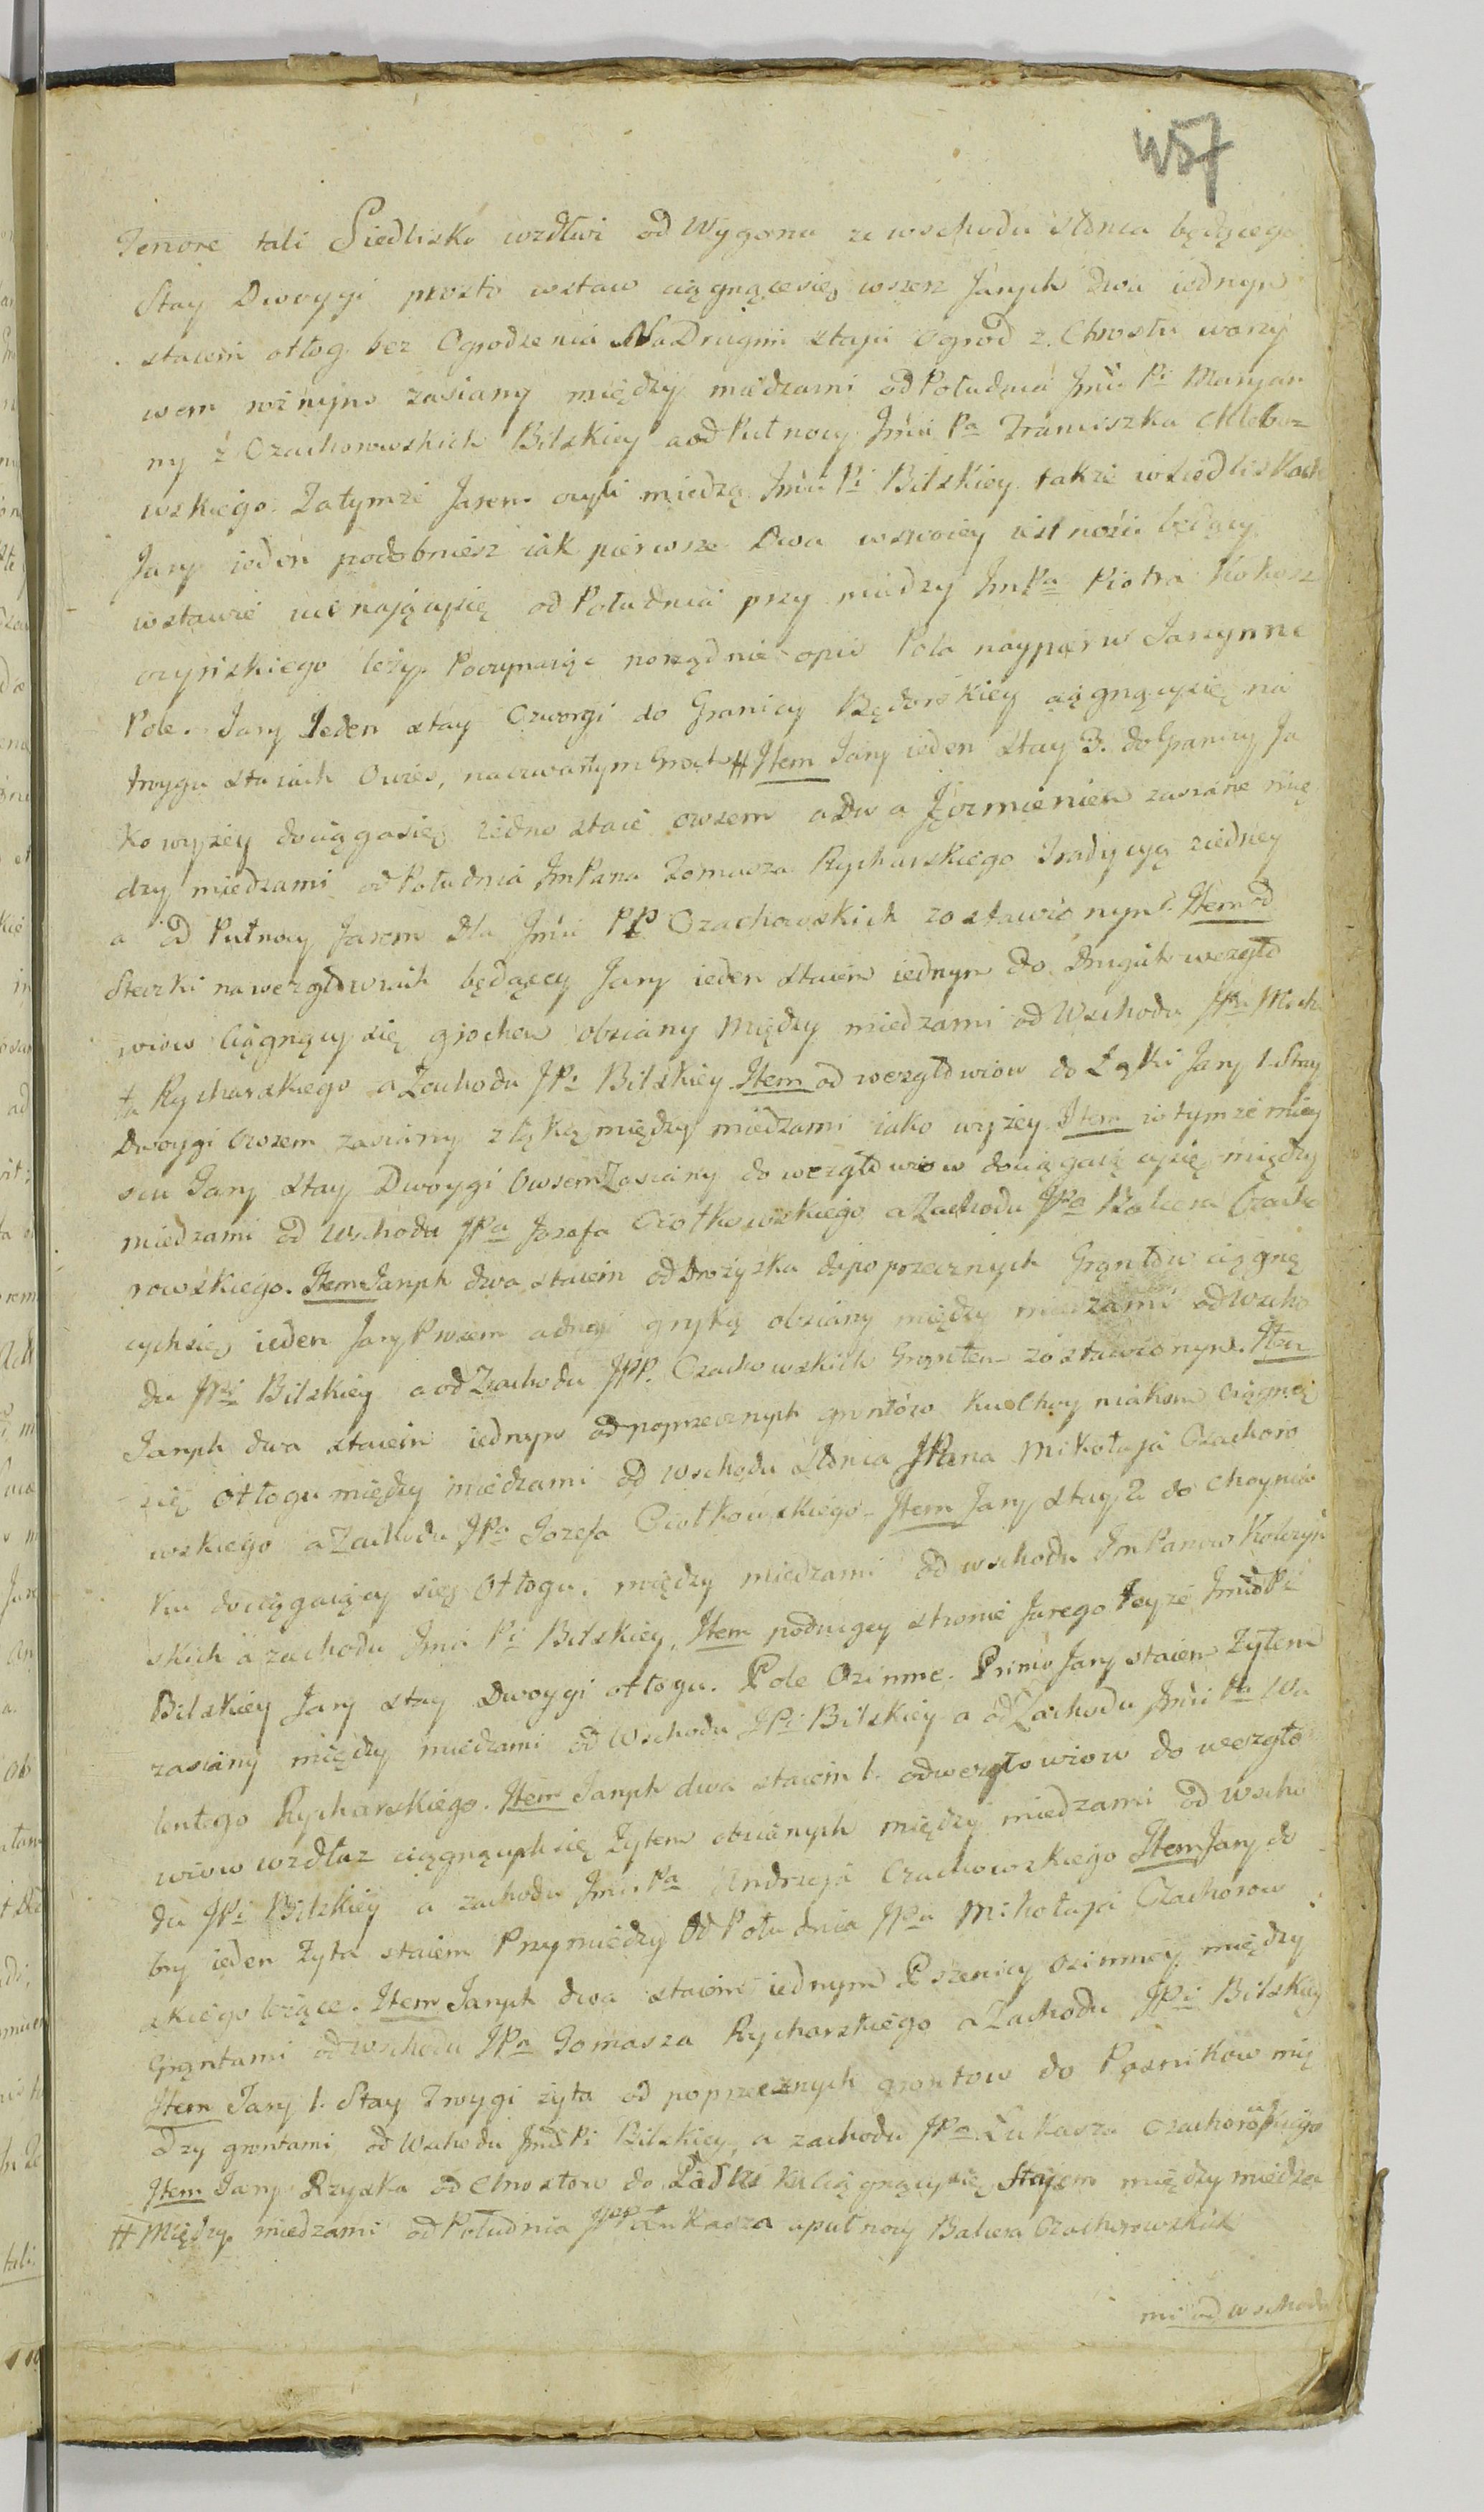 457
Tenore tali Siedlisko wzdłuż od Wygonu ze wschodu słońca będącego
Stay Dwoygi prosto wstaw ciągnącesię wszerz Janych dwa iednym
staiem otłog bez Ogrodzenia Na Drugim staju ogrod z Chrostu warzy
wem rożnym zasiany między miedzami od Południa Jmci Pi Maryan
ny z Czachorowskich Bilskiey a od Pułnocy Jmci Pa Franciszka Chlebow
wskiego. Zatymże Janem czyli miedzą Jmci Pi Bilskiey także w siedliskach
Jany ieden podobniesz iak pierwsze Dwa w swoiey istności będący
wstawie ucinającysię od Południa przy miedzy JmPa Piotra Kokosz
czyńskiego leży. Poczynaiąc porządnie opis Pola naypierw Jarzynne
Pole. Jany Jeden stay Czworgi do Granicy Będorskiey ciągnącysię na
troygu staiach Owies, na czwartym Groch # Item Jany ieden Stay 3. do Granicy Ja
ko wyżey dociągasię iedno staie owsem a dwa Jęczmieniem zasiane mię
dzy miedzami od Południa JmPana Tomasza Rycharskiego Tradycyą ziedney
a od Pułnocy Janem dla Jmci PP Czachowskich zostawionym. Item od
Steczki na wezgłowiach będący Jany ieden staiem iednym do Drugich wezgło
wiow ciągnący się grochem obsiany między miedzami od Wschodu JPa Micha
ła Rycharskiego a Zachodu JPi Bilskiey. Item od wezgłowiow do Łąki Jany 1. Stay
Dwoygi Owsem zasiany z łąką między miedzami iako wyżey Item w tymże miey
scu Jany stay Dwoygi Owsem Zasiany do wezgłowiow dociągaiącysię między
miedzami od Wschodu JPa Jozefa Ciołkowskiego a Zachodu JPa Balcera Czacho
rowskiego. Item Janych dwa staiem od Drożyska do poprzecznych Gruntow ciągną
cychsię ieden Jany Owsem a drugi gryką obsiany między miedzami od Wscho
du JPi Bilskiey a od Zachodu JPP. Czachowskich Gruntem zostawionym. Item
Janych dwa staiem iednym od poprzecznych gruntow ku Choyniakom ciągną
się otłogu między miedzami od wschodu słońca JPana Mikołaja Czachoro
wskiego a Zachodu JPa Jozefa Ciołkowskiego. Item Jany stay 2. do Choynia
ku dociągaiący się Otłogu, między miedzami od wschodu JmPanow Kolczyń
skich a zachodu Jmci Pi Bilskiey, Item podrugiey stronie Janego teyże Jmci Pi
Bilskiey Jany stay Dwoygi otłogu. Pole Ozimne. Primo Jany staiem Żytem
zasiany między miedzami od Wschodu JPi Bilskiey a od Zachodu Jmci Pa Wa
lentego Rycharskiego. Item Janych dwa staiem 1. od wezgłowiow do wezgło
wiow wzdłuz ciągnącychsię Żytem obsianych między miedzami od Wscho
du JPi Bilskiey a zachodu Jmci Pa Andrzeja Czachowskiego Item Jany do
bry ieden Żyta staiem Przymiedzy Od Południa JPa Mikołaja Czachorow
skiego leżące. Item Janych dwa staiem iednym Pszenicy ozimney między
Gruntami od wschodu JPa Tomasza Rycharskiego a Zachodu JPi Bilskiey
Item Jany 1. Stay Troygi żyta od poprzecznych gruntow do Posnikow mię
dzy gruntami od Wschodu Jmci Pi Bilskiey, a zachodu JPa Łukasza Czachorowskiego
Item Jany Rzyska od Chrostow do ciągnącysię Stajem między miedza
# Między miedzami od Południa JPP Łukasza a pułnocy Balcera Czachorowskich
mi od wschodu